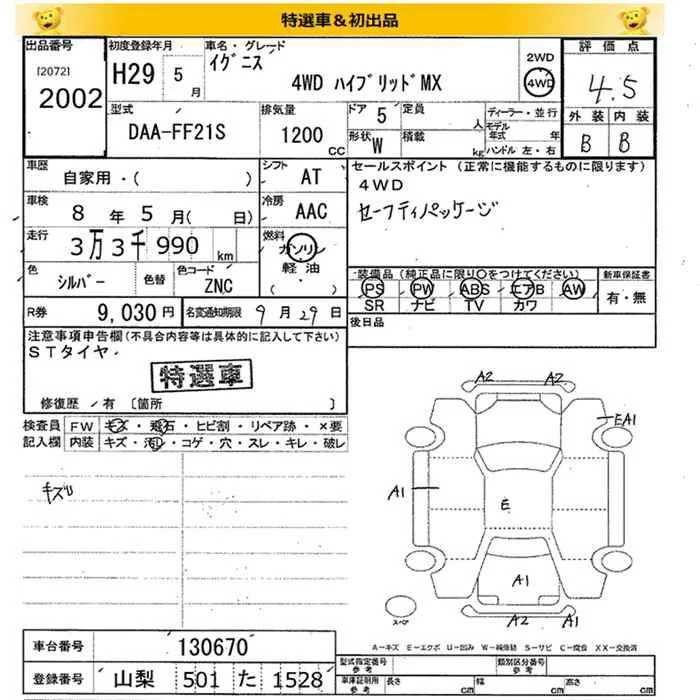 特選車＆初出品
出品番号 初度登録年月 車名・グレード 評価点
[2072] H29 5月 イグニス 2WD
2002 4WD ハイブリッドMX 4WD 4.5
型式 排気量 ドア 5 定員 人 ディーラー・並行 外装 内装
DAA-FF21S 1200 CC 形状 W 積載 kg モデル年式 年 B B
ハンドル 左・右
車歴 自家用・( ) シフト AT セールスポイント (正常に機能するものに限ります)
4WD
車検 8年 5月( 日) 冷房 AAC セーフティパッケージ
走行 3万3千990 km 燃料 ガソリン
軽油
( )
色 シルバー 色替 色コード ZNC 装備品 (純正品に限り〇をつけてください) 新車保証書
PS PW ABS エアB AW 有・無
SR ナビ TV カワ
R券 9,030円 名変通知期限 9月29日 後日品
注意事項申告欄(不具合内容等は具体的に記入して下さい)
STタイヤ.
特選車
修復歴 有 〔箇所 〕
検査員 FW キズ・飛石・ヒビ割・リペア跡・×要
記入欄 内装 キズ・汚レ・コゲ・穴・スレ・キレ・破レ
キズ
A2 A2
EA1
A1
E
A1
A2 A1
スペア
A－キズ E－エクボ U－凹み W－補修跡 S－サビ C－腐食 XX－交換済
車台番号 130670 型式指定番号 参考 類別区分番号 参考
登録番号 山梨 501 た 1528 車庫証明用 参考 長さ cm 幅 cm 高さ cm